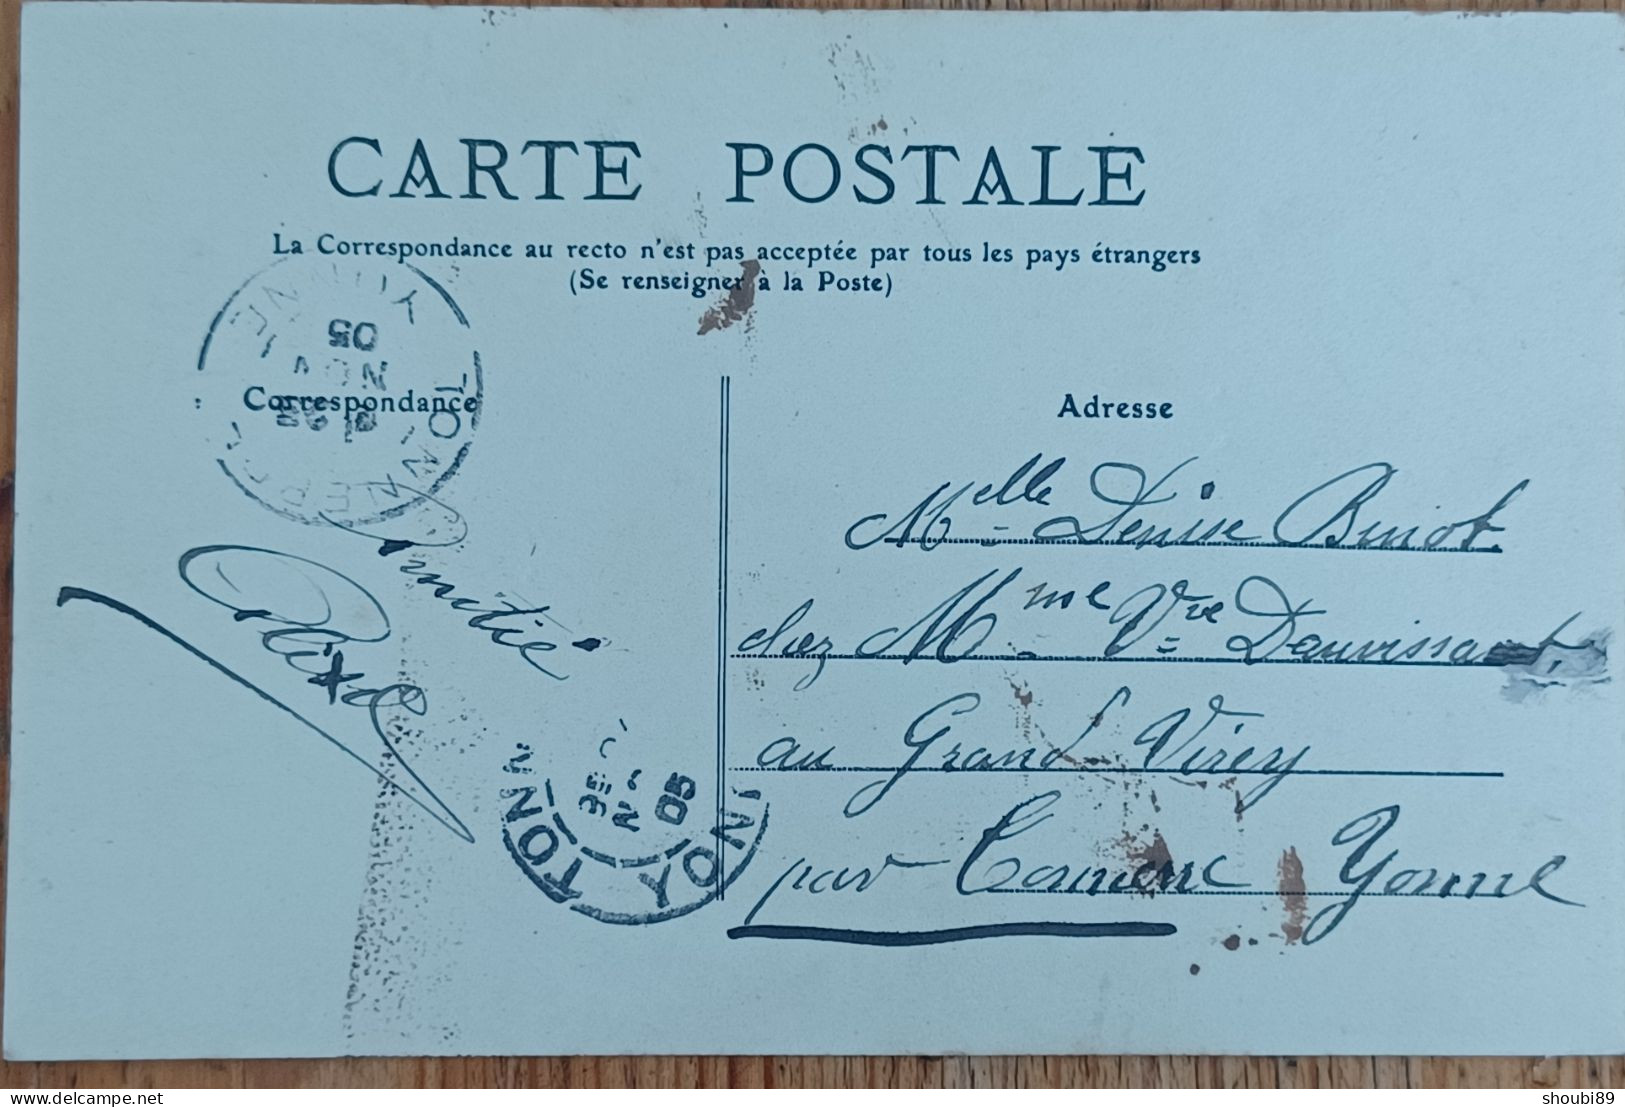 CARTE POSTALE
La Correspondance au recto n'est pas acceptée par tous les pays étrangers
(Se renseigner à la Poste)
Correspondance
Amitié
Adresse
Melle Denise Buiot
chez Mme Vve Dauvissat
au Grand Virey
par Tonnerre Yonne
YONNE
05
NOV
TONNERRE
TONN
05
YONN
shoubi89